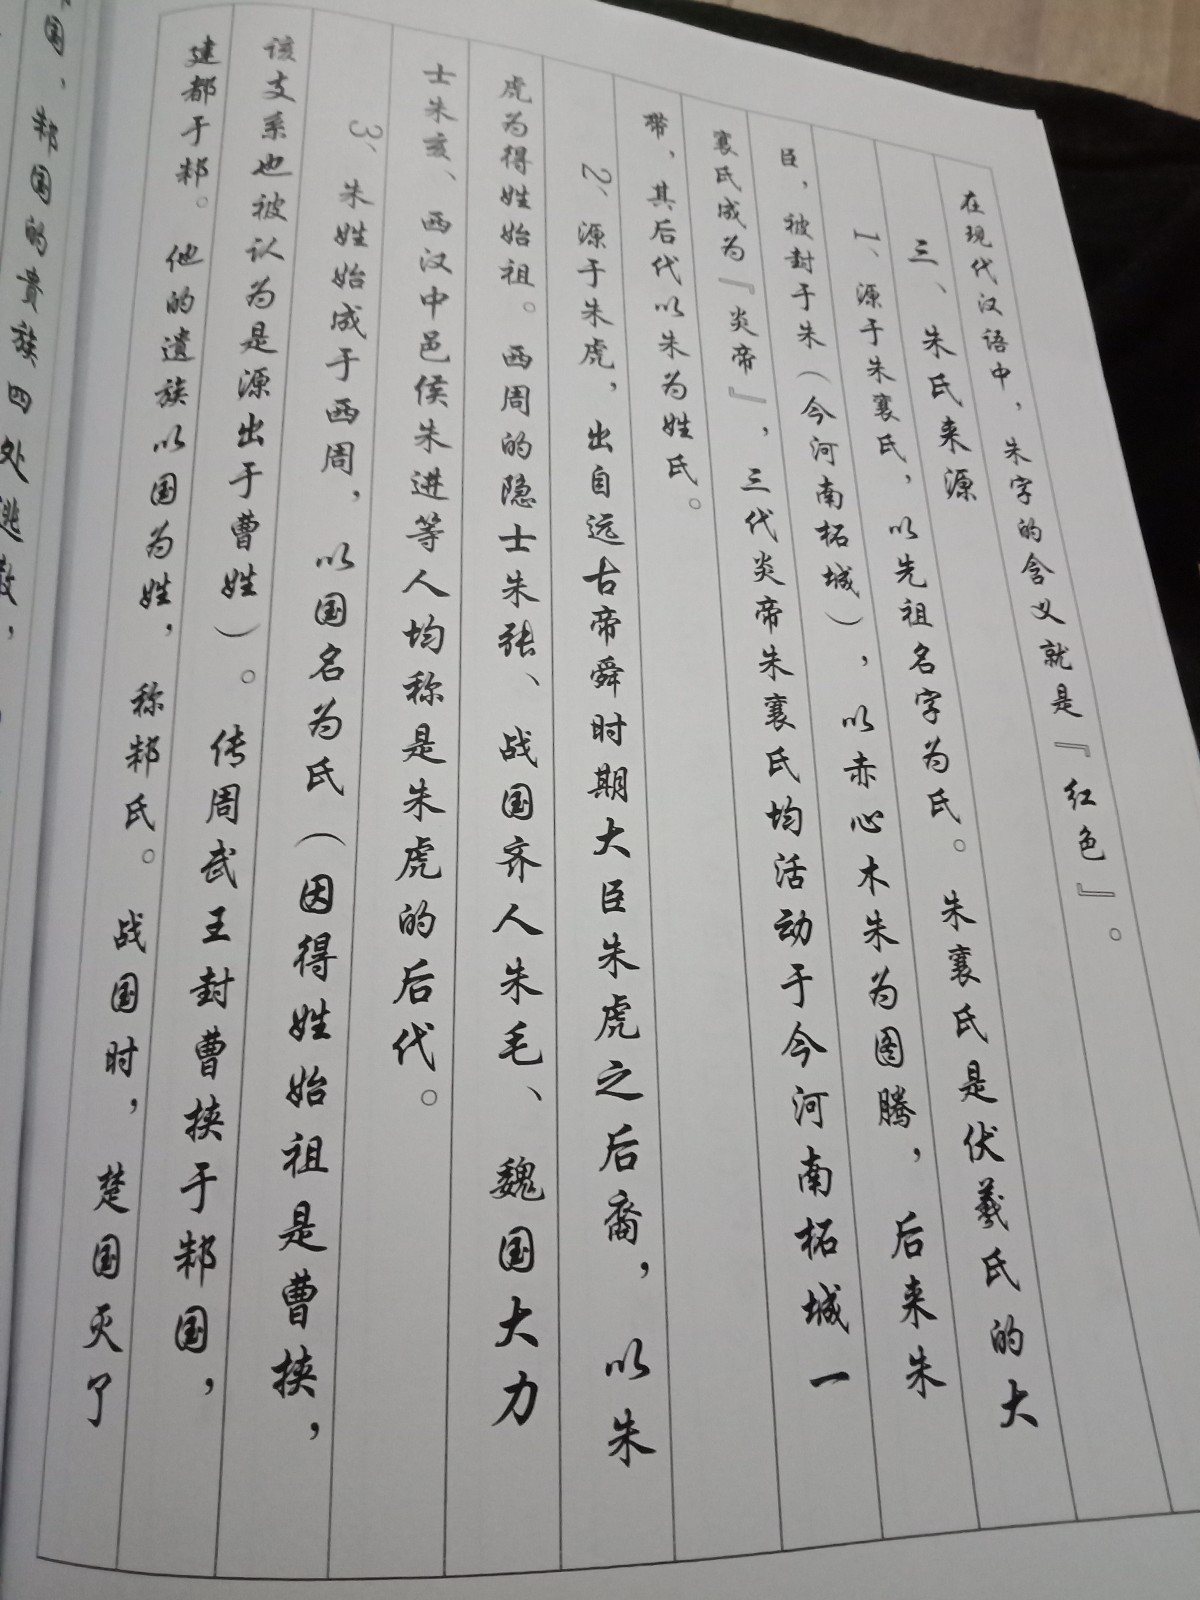 在现代汉语中，朱字的含义就是『红色』。
三、朱氏来源
1、源于朱襄氏，以先祖名字为氏。朱襄氏是伏羲氏的大
臣，被封于朱（今河南柘城），以赤心木朱为图腾，后来朱
襄氏成为『炎帝』，三代炎帝朱襄氏均活动于今河南柘城一
带，其后代以朱为姓氏。
2、源于朱虎，出自远古帝舜时期大臣朱虎之后裔，以朱
虎为得姓始祖。西周的隐士朱张、战国齐人朱毛、魏国大力
士朱亥、西汉中邑侯朱进等人均称是朱虎的后代。
3、朱姓始成于西周，以国名为氏（因得姓始祖是曹挟，
该支系也被认为是源出于曹姓）。传周武王封曹挟于邾国，
建都于邾。他的遗族以国为姓，称邾氏。战国时，楚国灭了
国，邾国的贵族四处逃散，